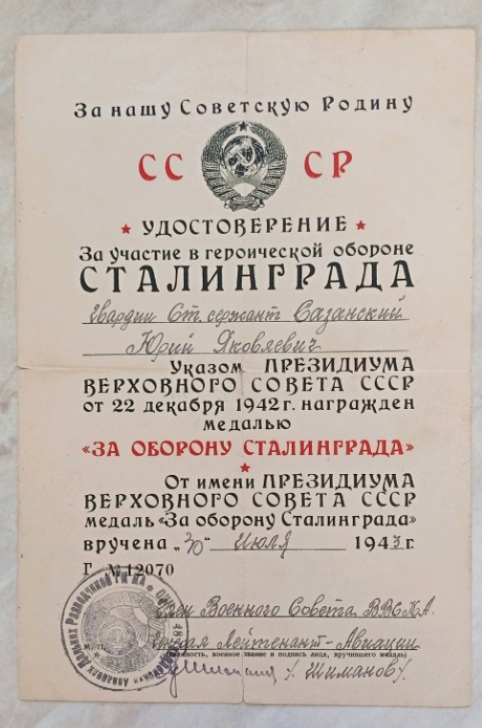 За нашу Советскую Родину
СС СР
УДОСТОВЕРЕНИЕ
За участие в героической обороне
СТАЛИНГРАДА
Гвардии Ст. сержант Сазанский
Юрий Яковлевич
Указом ПРЕЗИДИУМА
ВЕРХОВНОГО СОВЕТА СССР
от 22 декабря 1942 г. награжден
медалью
«ЗА ОБОРОНУ СТАЛИНГРАДА»
От имени ПРЕЗИДИУМА
ВЕРХОВНОГО СОВЕТА СССР
медаль «За оборону Сталинграда»
вручена „30“ Июля 1943 г.
Г № 12070
Член Военного Совета ВВС К.А.
Генерал Лейтенант-Авиации
(должность, военное звание и подпись лица, вручившего медаль)
/Шиманов/.